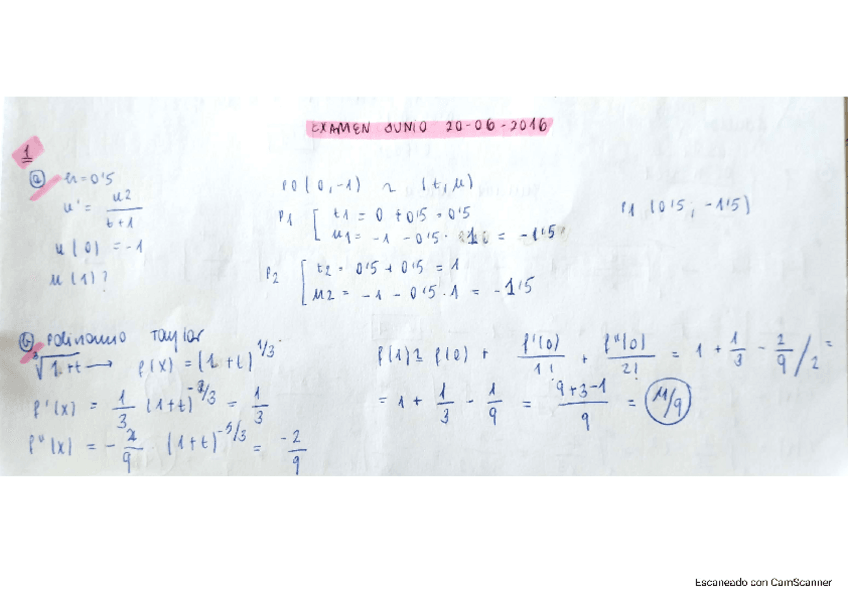 EXAMEN JUNIO 20-06-2016
1
a) h=0'5
u' = u2/t+1
u(0) = -1
u(1)?
P0(0,-1) ~ (t,u)
P1 [ t1 = 0 + 0'5 = 0'5
u1 = -1 - 0'5 · 1 = -1'5
P1 (0'5, -1'5)
P2 [ t2 = 0'5 + 0'5 = 1
u2 = -1 - 0'5 · 1 = -1'5
b) Polinomio Taylor
∛1+t → f(x) = (1+t)^1/3
f'(x) = 1/3 (1+t)^-2/3 = 1/3
f''(x) = -2/9 · (1+t)^-5/3 = -2/9
f(1) ≃ f(0) + f'(0)/1! + f''(0)/2! = 1 + 1/3 - 2/9/2 =
= 1 + 1/3 - 1/9 = 9+3-1/9 = 11/9
Escaneado con CamScanner